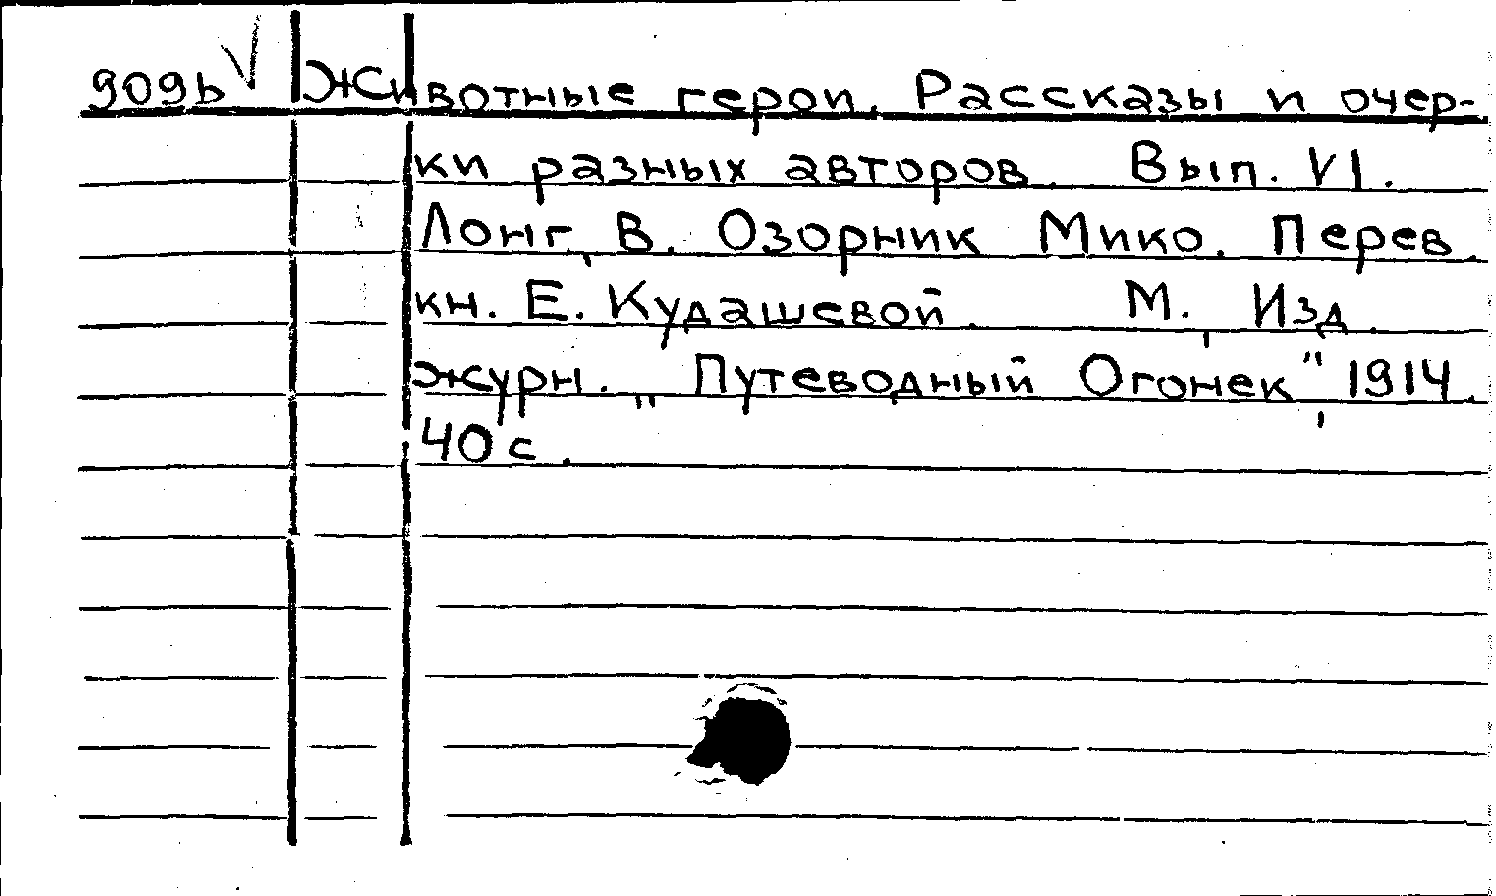 909b V Животные герои. Рассказы и очер-
ки разных авторов. Вып. VI.
Лонг, В. Озорник Мико. Перев.
кн. Е. Кудашевой. М., Изд.
журн. „Путеводный Огонек", 1914.
40 с.